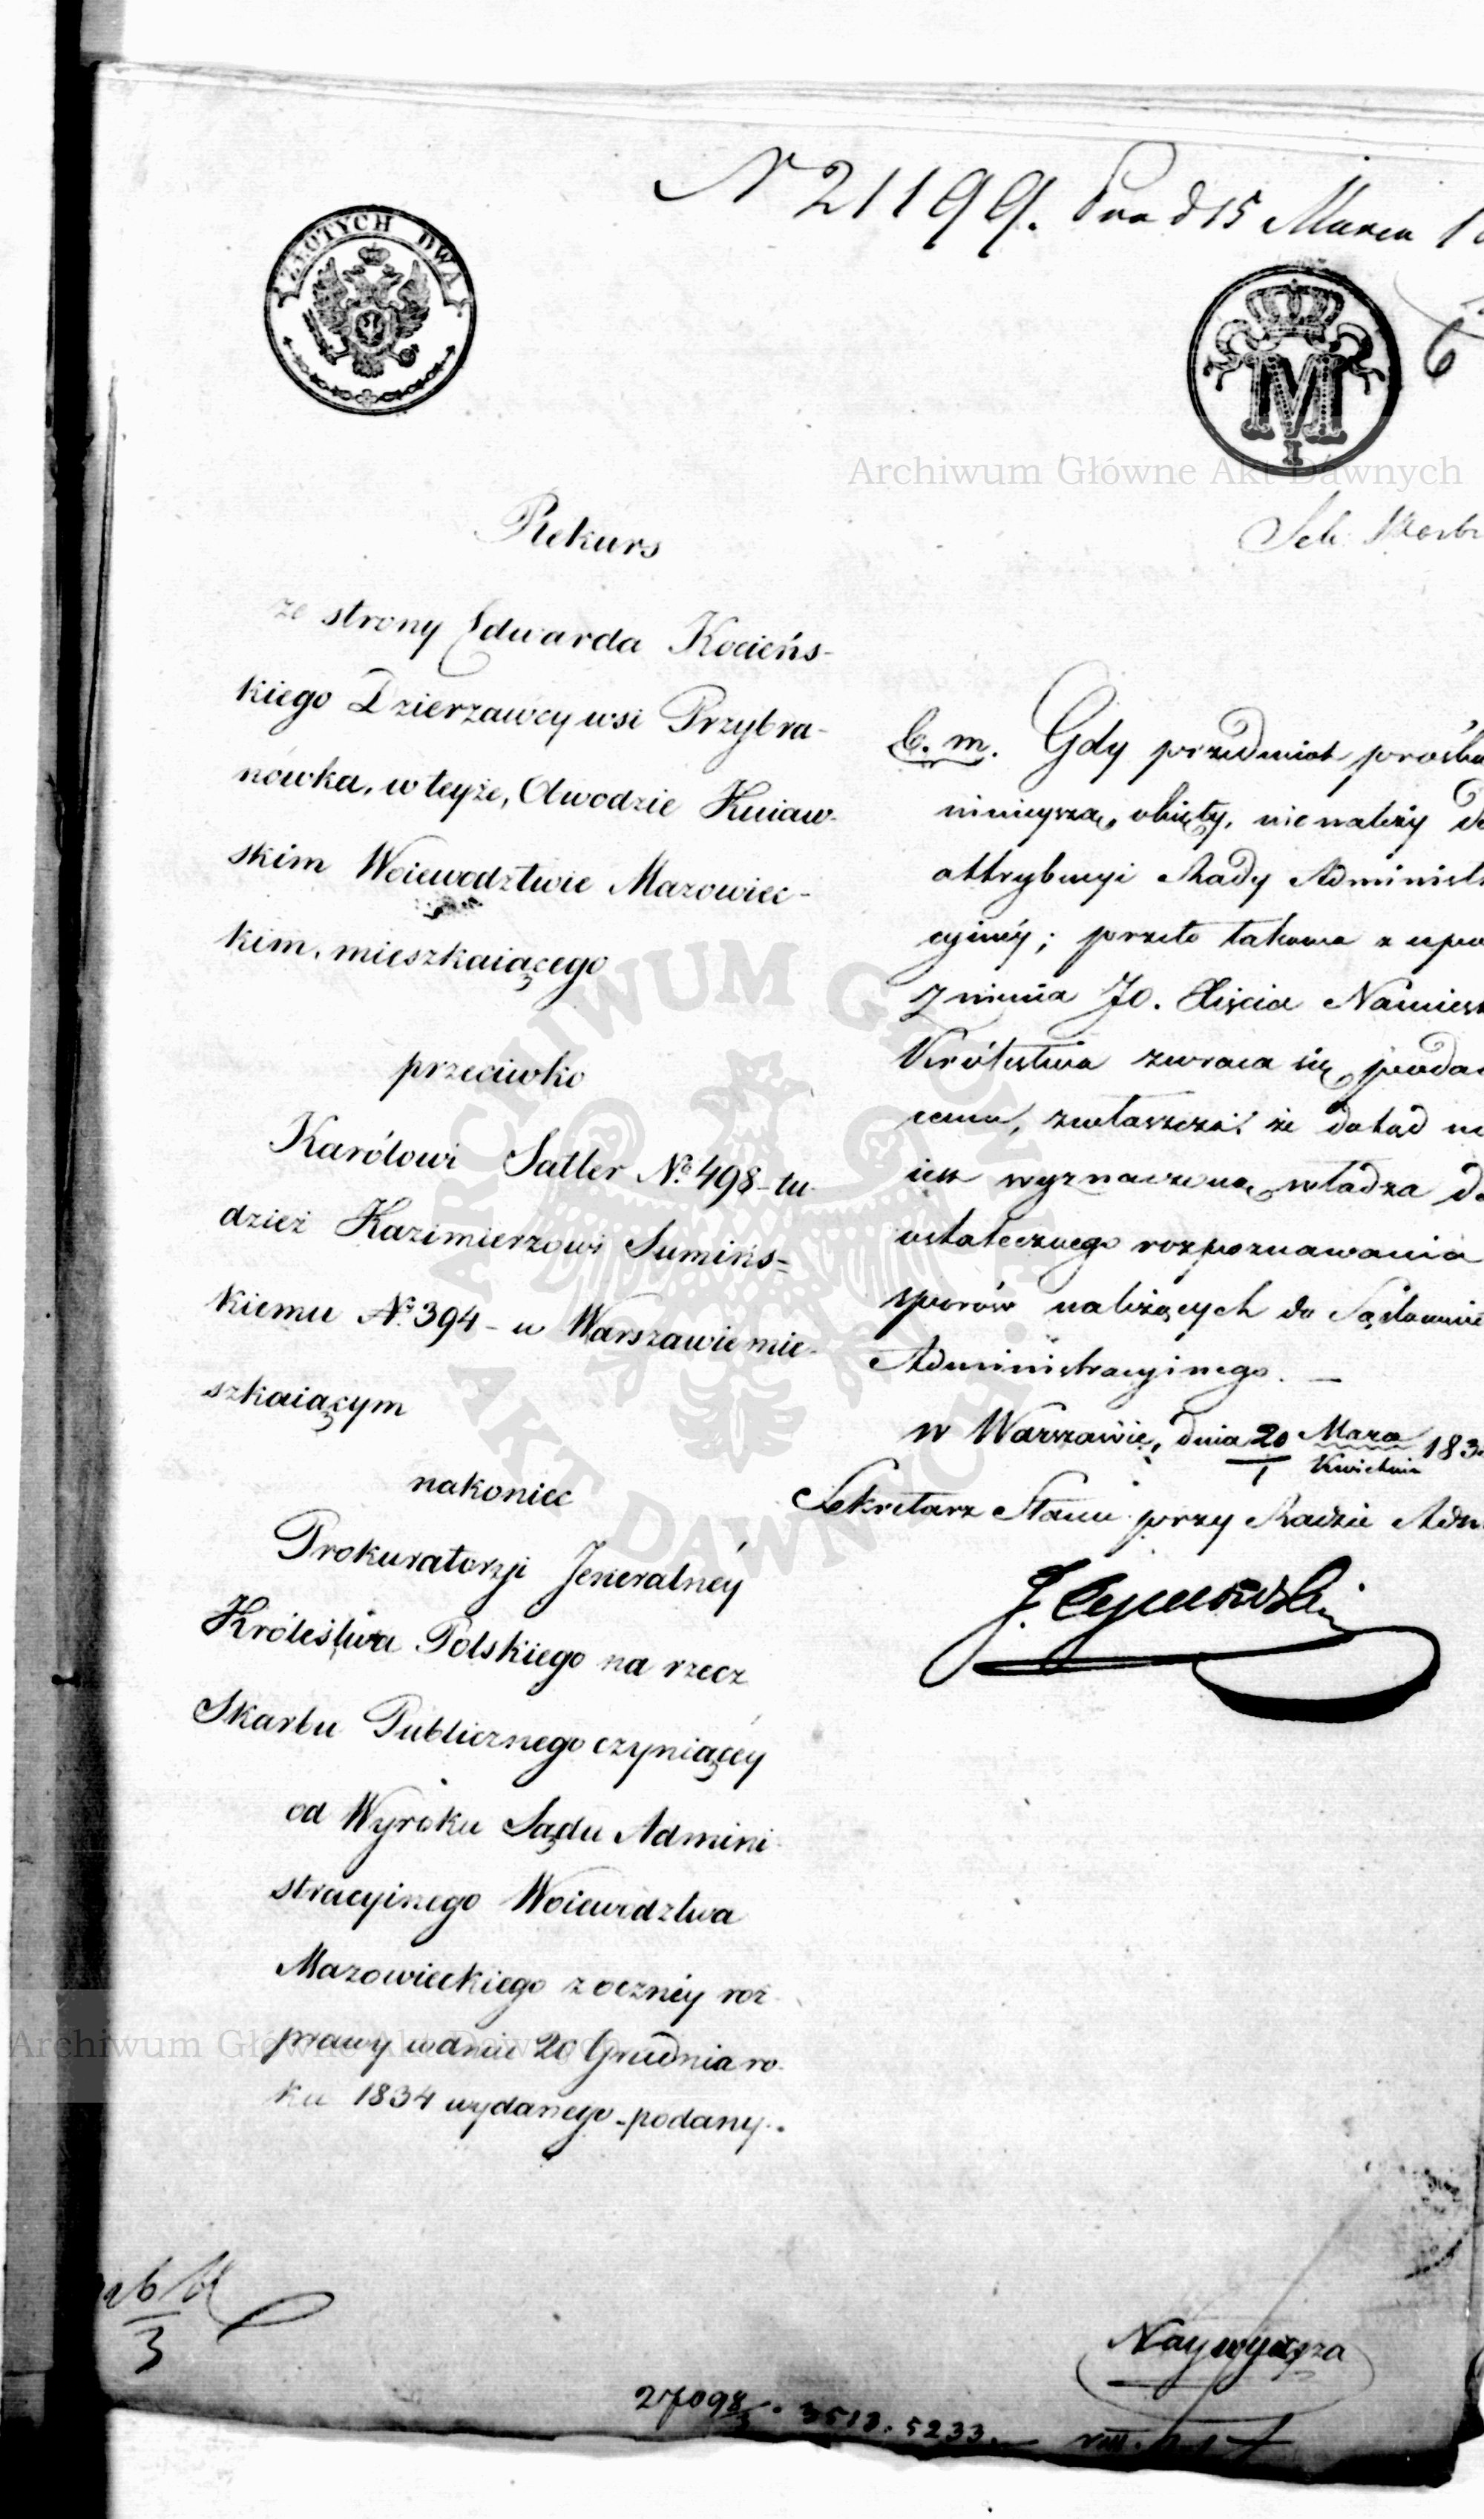 N 21199. Pra d 15 Marca 18
ZŁOTYCH DWA
M
I
Archiwum Główne Akt Dawnych
Rekurs
ze strony Edwarda Kocieńs-
kiego Dzierzawcy wsi Przybra-
nówka, w teyże, Obwodzie Kuiaw-
skim Woiewodztwie Mazowiec-
kim, mieszkaiącego
przeciwko
Karólowi Satler No. 498 - tu-
dzież Kazimierzowi Sumińs-
kiemu No. 394 - w Warszawie mie-
szkaiącym
nakoniec
Prokuratorji Jeneralnéy
Królestwa Polskiego na rzecz
Skarbu Publicznego czyniącéy
od Wyroku Sądu Admini-
stracyinego Woiewodztwa
Mazowieckiego z ocznéy roz-
prawy w dniu 20 Grudnia ro-
ku 1834 wydanego - podany.
C. m. Gdy przedmiot prośbą
ninieyszą, obięty, nie należy do
attrybucyi Rady Administr
cyinéy; przeto takowa z upo
znienia JO. Xięcia Namiest
Królestwa zwraca się poda
cemu, zwłaszcza że dotąd n
iest wyznaczoną władza do
ostatecznego rozpoznawania
sporów należących do Sądownic
Administracyinego. —
w Warszawie, dnia 20 Marca 183
1 Kwietnia
Sekretarz Stanu przy Radzie Adm
ARCHIWUM GŁÓWNE AKT DAWNYCH
Archiwum Główne Akt Dawnych
3
Naywyższa
27098/3 . 3513. 5233.